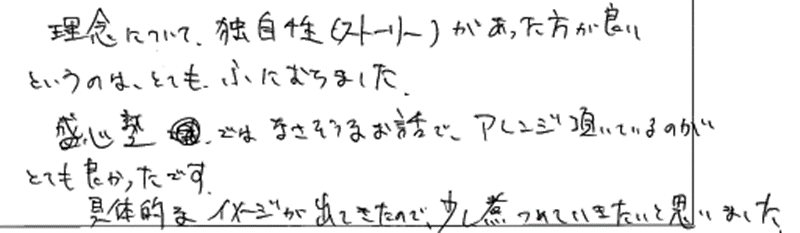 理念について、独自性(ストーリー)があった方が良い
というのは、とても、ふにおちました。
盛心塾 では なさそうなお話で、アレンジ頂いているのが
とても良かったです。
具体的な イメージが出てきたので、少し煮つめていきたいと思いました。